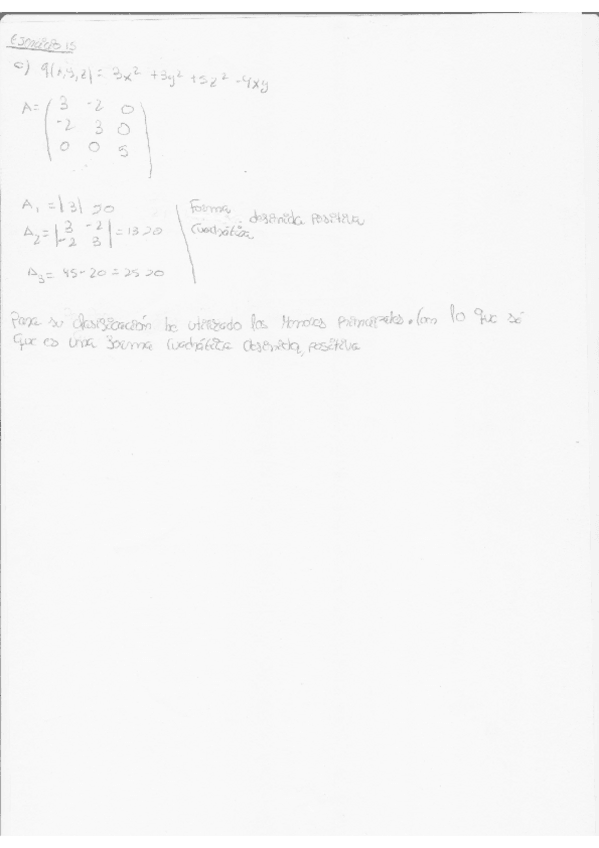 EJERCICIO 15
c) q(x,y,z) = 3x² + 3y² + 5z² - 4xy
A = ( 3 -2 0
-2 3 0
0 0 5 )
A₁ = |3| >0
Δ₂ = | 3 -2 | = 13 >0
| -2 3 |
Δ₃ = 45-20 = 25 >0
Forma
cuadrática definida positiva
Para su clasificación he utilizado los menores principales. Con lo que sé
que es una forma cuadrática definida positiva